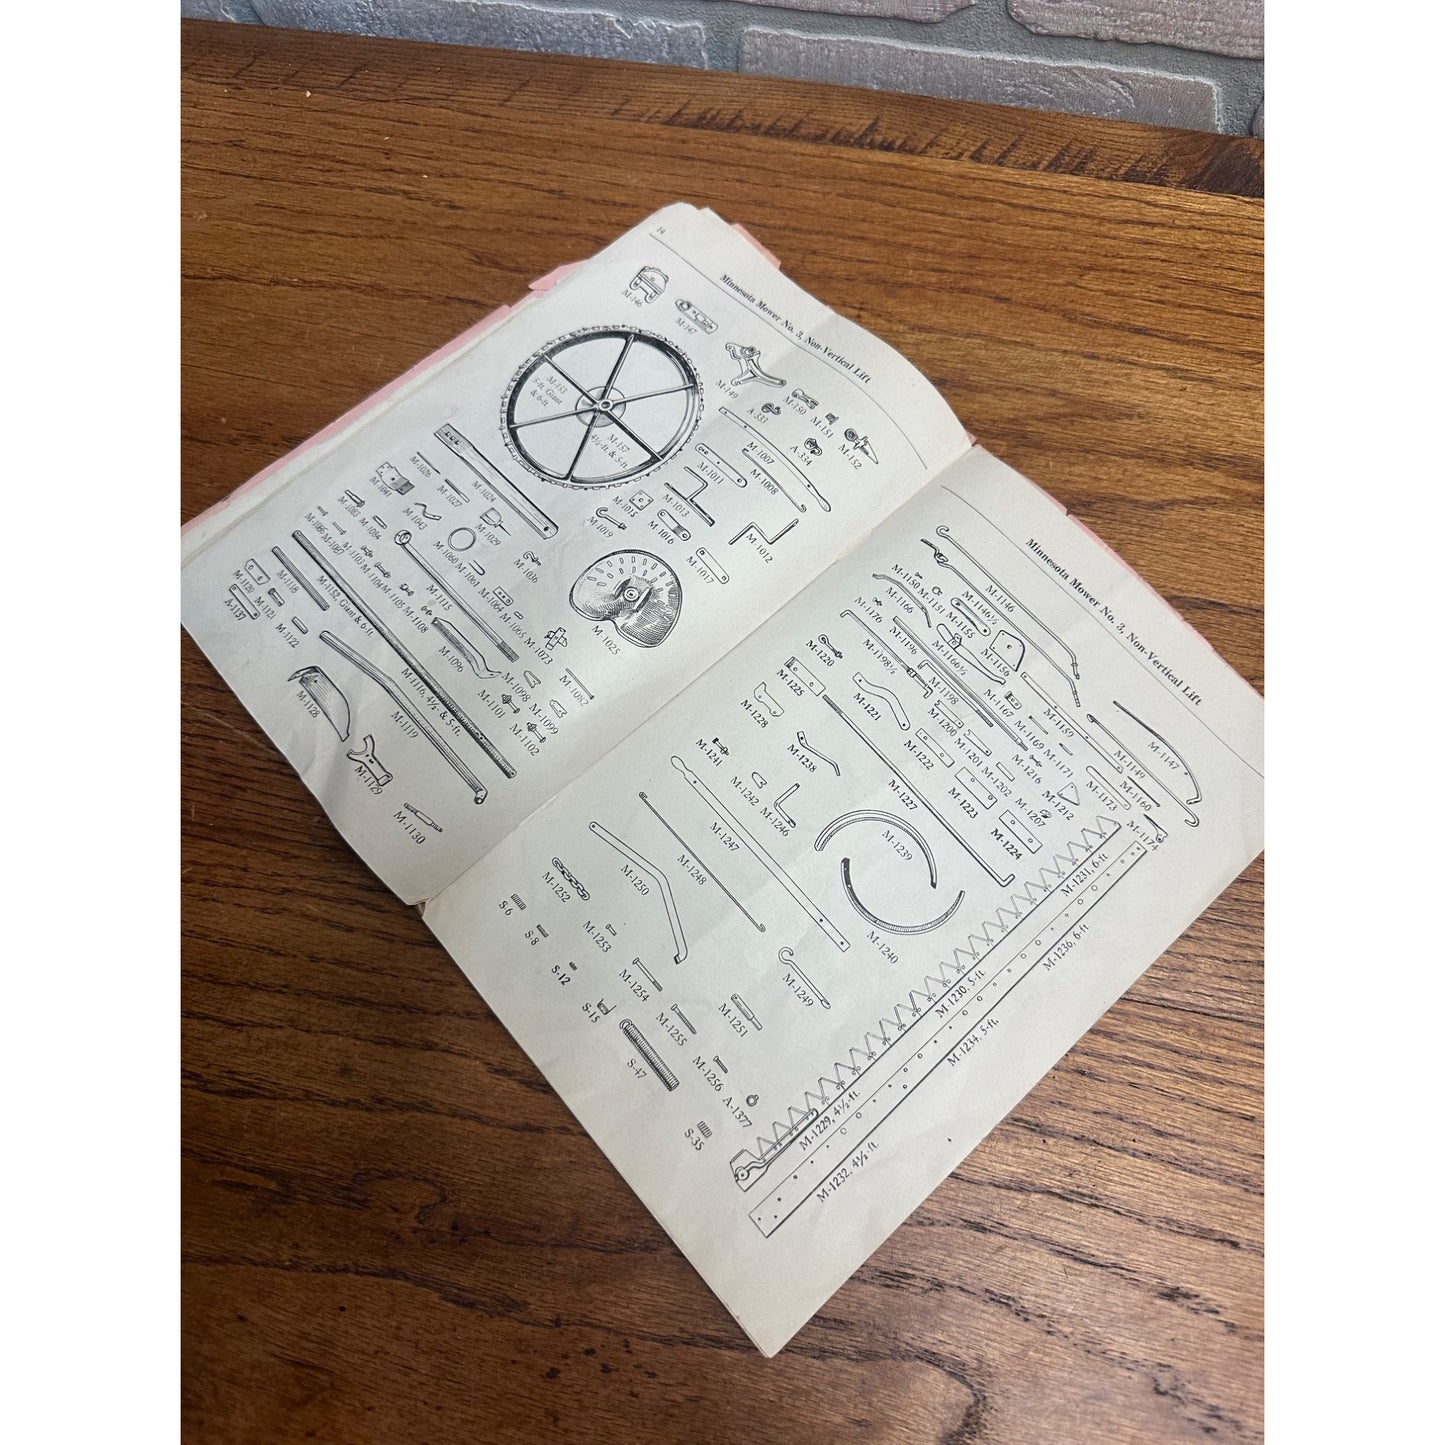 14
Minnesota Mower No. 3, Non-Vertical Lift
M-146
M-147
M-149
M-150
M-151
M-152
A-333
A-334
M-153
5-ft. Giant
& 6-ft.
M-157
4½-ft. & 5-ft.
M-1007
M-1008
M-1011
M-1012
M-1013
M-1015
M-1016
M-1017
M-1019
M-1024
M-1025
M-1026
M-1027
M-1029
M-1036
M-1041
M-1043
M-1060
M-1061
M-1064
M-1065
M-1073
M-1082
M-1085
M-1094
M-1086
M-1087
M-1103
M-1104
M-1105
M-1108
M-1115
M-1096
M-1098
M-1099
M-1101
M-1102
M-1118
M-1152, Giant & 6-ft.
M-1116, 4½ & 5-ft.
M-1119
M-1120
M-1121
M-1122
A-1137
M-1128
M-1129
M-1130
Minnesota Mower No. 3, Non-Vertical Lift
M-1146
M-1146½
M-1147
M-1149
M-1150
M-1151
M-1155
M-1156
M-1159
M-1160
M-1166
M-1166½
M-1167
M-1169
M-1171
M-1173
M-1174
M-1176
M-1196
M-1198
M-1198½
M-1200
M-1201
M-1202
M-1207
M-1212
M-1216
M-1220
M-1221
M-1222
M-1223
M-1224
M-1225
M-1227
M-1228
M-1238
M-1239
M-1240
M-1241
M-1242
M-1246
M-1247
M-1248
M-1249
M-1250
M-1251
M-1252
M-1253
M-1254
M-1255
M-1256
A-1377
S-6
S-8
S-12
S-15
S-47
S-35
M-1231, 6-ft
M-1236, 6-ft.
M-1230, 5-ft
M-1234, 5-ft.
M-1229, 4½-ft.
M-1232, 4½-ft.